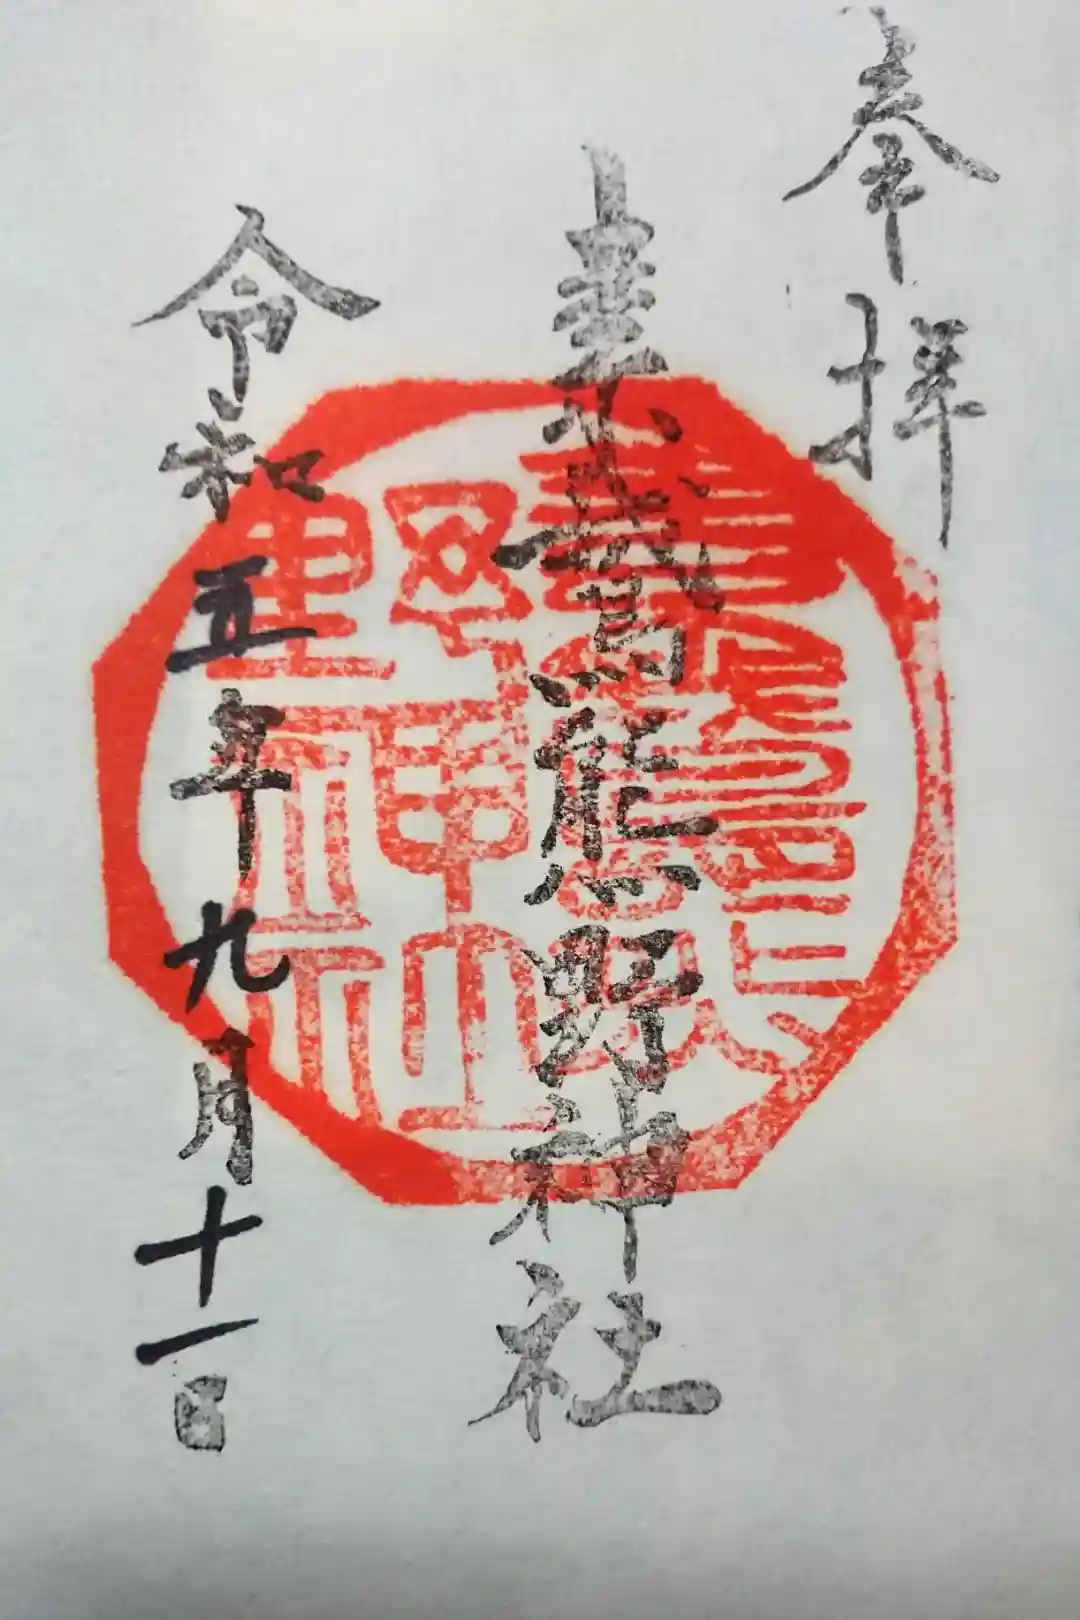 奉拝
素鵞熊野神社
令和五年九月十一日
素鵞熊野神社